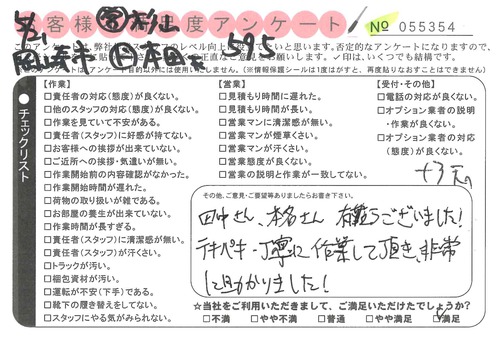 お客様満足度アンケート
№ 055354
5/21 ㊂ 杉山
岡崎市 日 本田 595
チェックリスト
【作業】
□責任者の対応(態度)が良くない。
□他のスタッフの対応(態度)が良くない。
□作業を見ていて不安がある。
□責任者(スタッフ)に好感が持てない。
□お客様への挨拶が出来ていない。
□ご近所への挨拶・気遣いが無い。
□作業開始前の内容確認がなかった。
□作業開始時間が遅れた。
□荷物の取り扱いが雑である。
□お部屋の養生が出来ていない。
□作業時間が長すぎる。
□責任者(スタッフ)に清潔感が無い。
□責任者(スタッフ)が汗くさい。
□トラックが汚い。
□梱包資材が汚い。
□運転が不安(下手)である。
□靴下の履き替えをしてない。
□スタッフにやる気がみられない。
【営業】
□見積もり時間に遅れた。
□見積もり時間が長い。
□営業マンに清潔感が無い。
□営業マンが煙草くさい。
□営業マンが汗くさい。
□営業態度が良くない。
□営業の説明と作業が一致してない。
【受付・その他】
□電話の対応が良くない。
□オプション業者の説明
・作業が良くない。
□オプション業者の対応
(態度)が良くない。
その他、ご意見・ご要望等ありましたらお書き下さい。
田中さん、本名さん 有難うございました!
テキパキ・丁寧に作業して頂き、非常
に助かりました!
☆当社をご利用いただきまして、ご満足いただけたでしょうか?
□不満 □やや不満 □普通 □やや満足 ☑満足